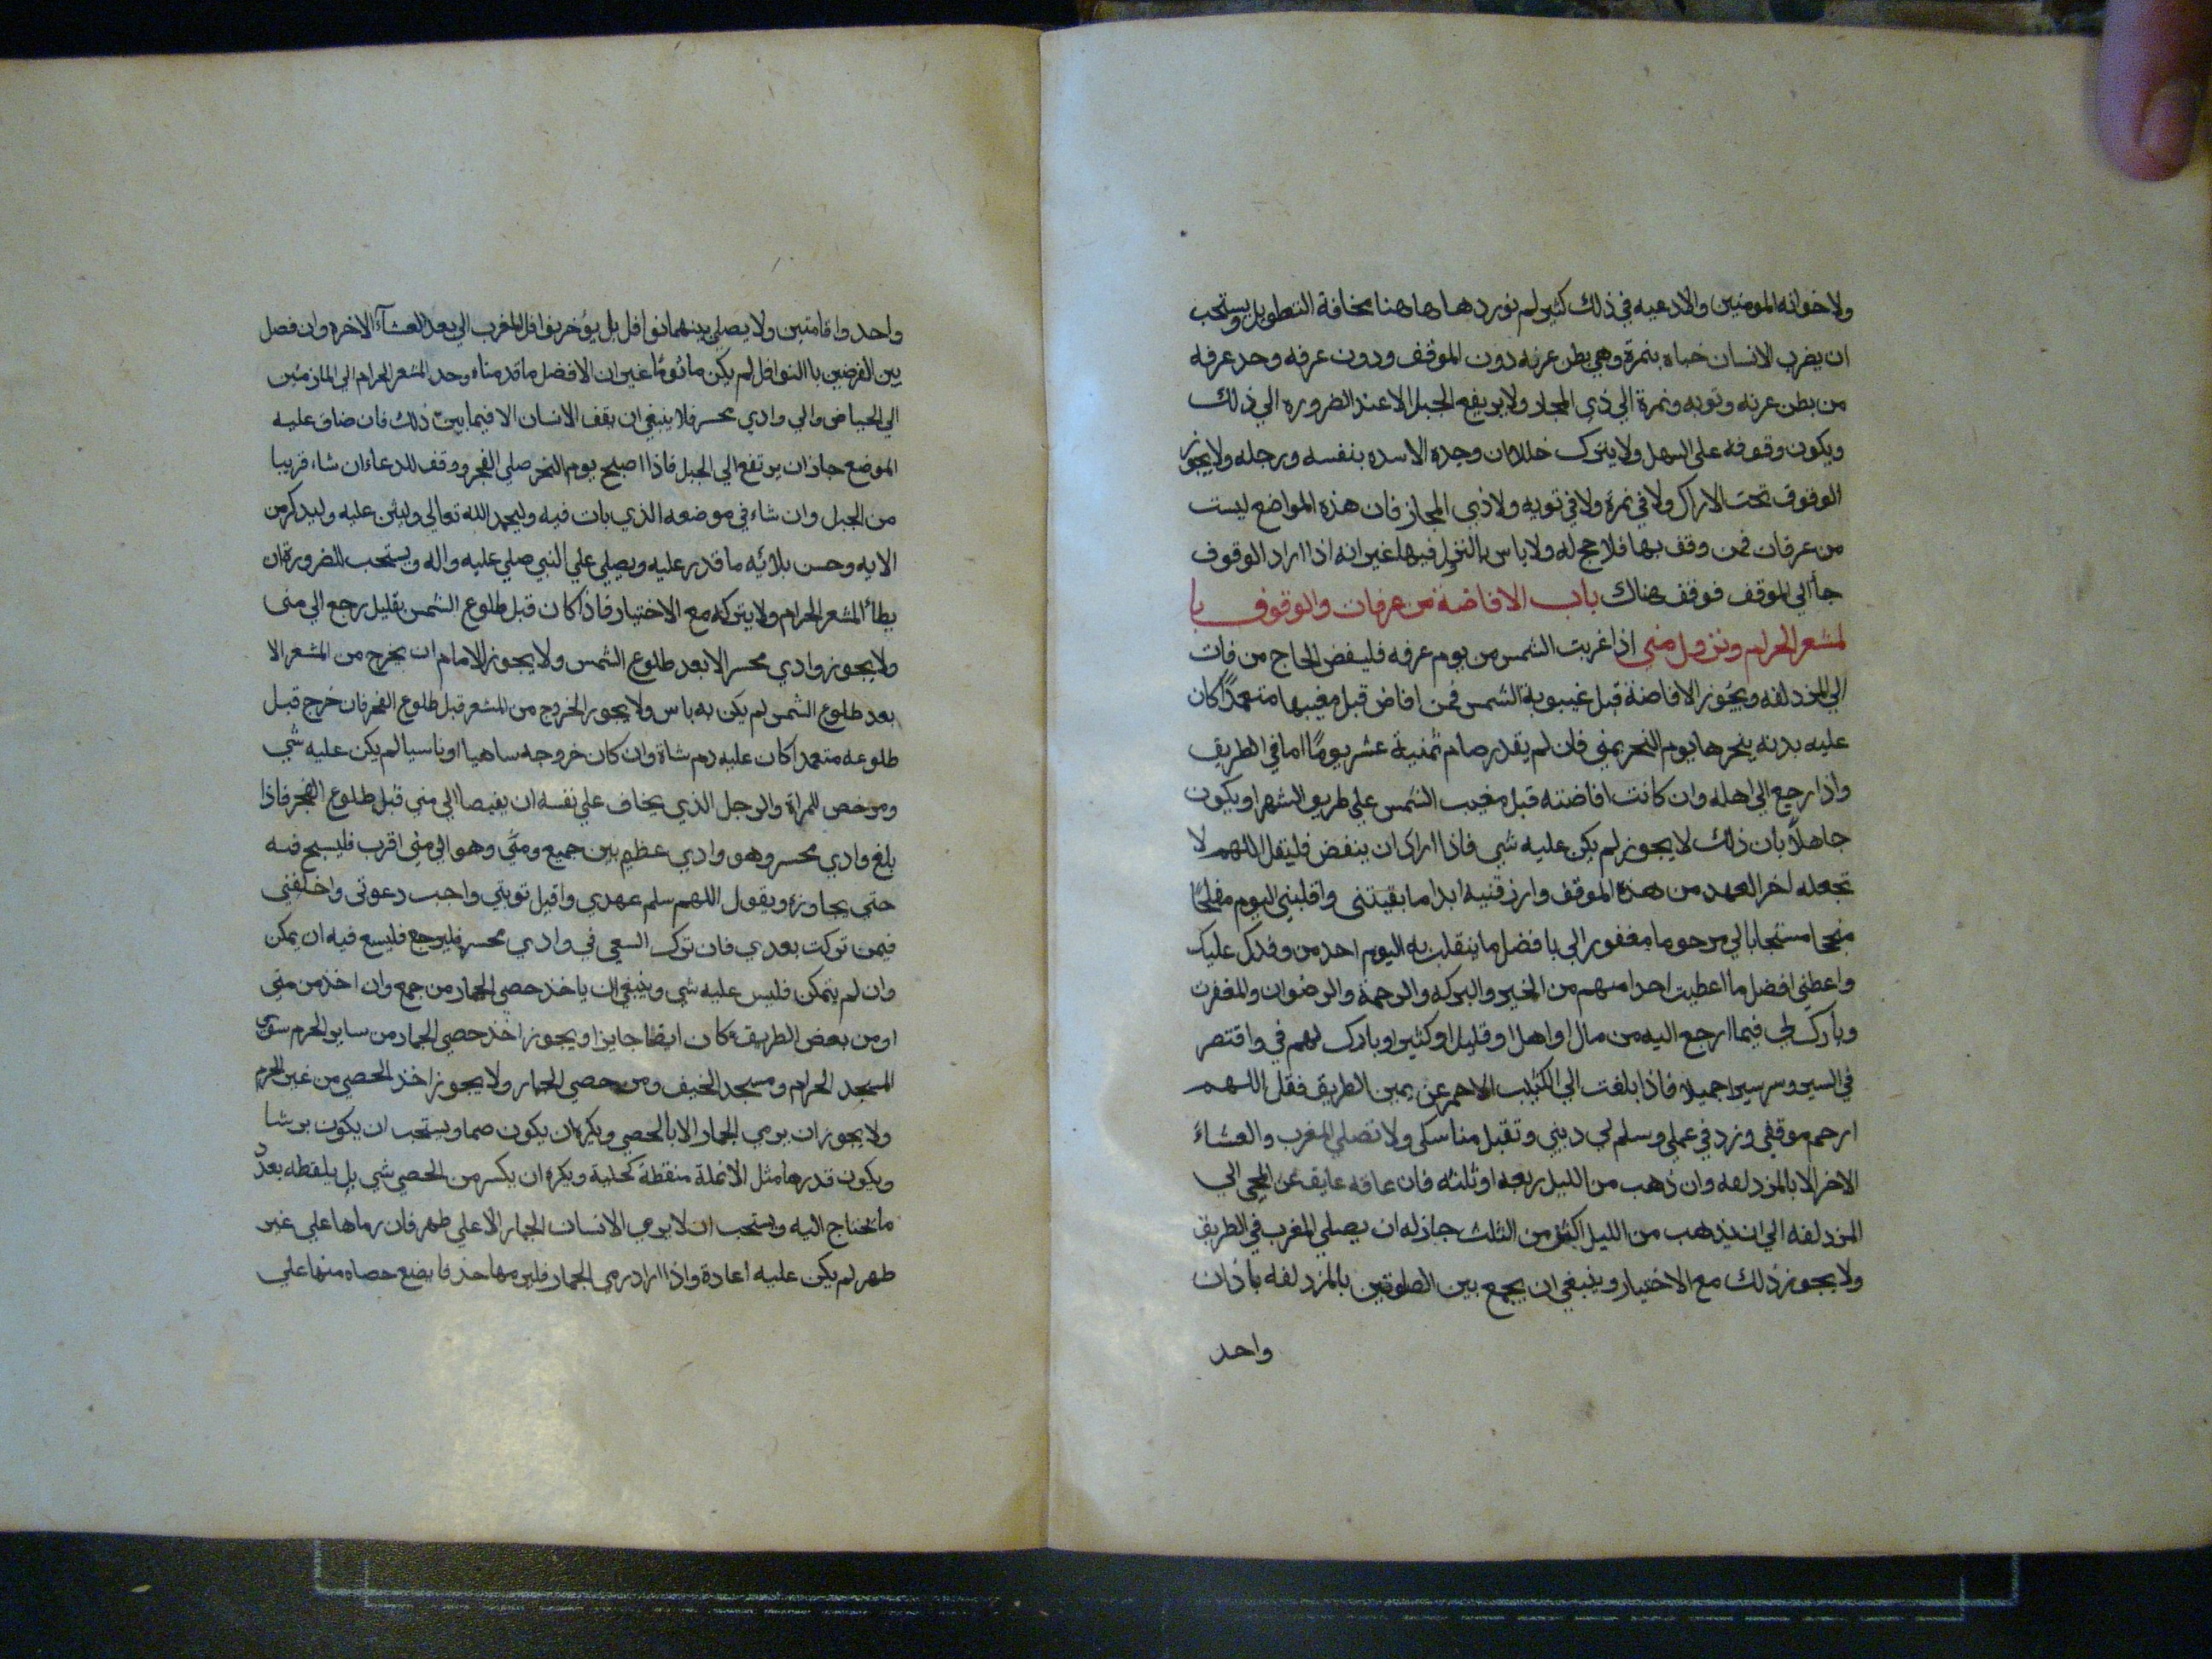 ولاخوانه المومنين والادعيه في ذلك كثير لم نوردها هاهنا مخافة التطويل ويستحب
ان يضرب الانسان خباه بنمرة وهي بطن عرنه دون الموقف ودون عرفه وحد عرفه
من بطن عرنه وثويه ونمرة الي ذي المجاز ولا يرتفع الجبل الا عند الضروره الي ذلك
ويكون وقوفه على السهل ولا يترك خللا ان وجده الا سده بنفسه ورحله ولا يجوز
الوقوف تحت الاراك ولا في نمرة ولا في ثويه ولا ذي المجاز فان هذه المواضع ليست
من عرفات فمن وقف بها فلا حج له ولا باس بالنزول فيها غير انه اذا اراد الوقوف
جاء الي الموقف فوقف هناك باب الافاضة من عرفات والوقوف با
لمشعر الحرام ونزول منى اذا غربت الشمس من يوم عرفه فليفض الحاج من فات
الي المزدلفه ويجوز الافاضة قبل غيبوبة الشمس فمن افاض قبل مغيبها متعمدًا كان
عليه بدنه ينحرها يوم النحر بمنى فان لم يقدر صام ثمنية عشر يومًا اما في الطريق
واذا رجع الي اهله وان كانت افاضته قبل مغيب الشمس علي طريق الشهر او يكون
جاهلاً بان ذلك لا يجوز لم يكن عليه شي فاذا اراك ان ينفض فليقل اللهم لا
تجعله اخر العهد من هذه الموقف وارزقنيه ابدا ما بقيتني واقلبني اليوم مفلحًا
منجحا مستجابا لي مرحوما مغفورا لي بافضل ما ينقلب به اليوم احد من وفدك عليك
واعطني افضل ما اعطيت احدا منهم من الخير والبركه والرحمة والرضوان والمغفرت
وبارك لي فيما ارجع اليه من مال او اهل او قليل او كثير وبارك لهم في واقتصر
في السير وسر سيرا جميلا فاذا بلغت الي الكثيب الاحمر عن يمين الطريق فقل اللهم
ارحم موقفي وزد في عملي وسلم لي ديني وتقبل مناسكي ولا تصلي المغرب والعشاء
الاخر الا بالمزدلفه وان ذهب من الليل ربعه او ثلثه فان عاقه عايق عن المجي الي
المزدلفه الي ان يذهب من الليل اكثر من الثلث جاز له ان يصلي المغرب في الطريق
ولا يجوز ذلك مع الاختيار وينبغي ان يجمع بين الصلوتين بالمزدلفه باذان
واحد
واحد واقامتين ولا يصلي بينهما نوافل بل يؤخر نوافل المغرب الي بعد العشآء الاخره وان فصل
بين الفرضين باالنوافل لم يكن ماثومًا غير ان الافضل ما قدمناه وحد المشعر الحرام الي المازمين
الي الحياض والي وادي محسر فلا ينبغي ان يقف الانسان الا فيما بين ذلك فان ضاق عليه
الموضع جاز ان يرتفع الي الجبل فاذا اصبح يوم النحر صلي الفجر ووقف للدعاء ان شاء قريبا
من الجبل وان شاء في موضعه الذي بات فيه وليحمد الله تعالي وليثن عليه وليذكر من
الايه وحسن بلائه ما قدر عليه ويصلي علي النبي صلي عليه واله ويستحب للضرورة ان
يطأ المشعر الحرام ولا يتركه مع الاختيار فاذا كان قبل طلوع الشمس بقليل رجع الي منى
ولا يجوز وادي محسر الا بعد طلوع الشمس ولا يجوز الامام ان يخرج من المشعر الا
بعد طلوع الشمس لم يكن به باس ولا يجوز الخروج من المشعر قبل طلوع الفجر فان خرج قبل
طلوعه متعمدا كان عليه دم شاة وان كان خروجه ساهيا او ناسيا لم يكن عليه شي
ومرخص للمراة والرجل الذي يخاف علي نفسه ان يفيضا الي منى قبل طلوع الفجر فاذا
بلغ وادي محسر وهو وادي عظيم بين جميع ومنى وهو الي منى اقرب فليسع فيه
حتي يجاوزه ويقول اللهم سلم عهدي واقبل توبتي واجب دعوتى واخلفنى
فيمن تركت بعدي فان ترك السعي في وادي محسر فليرجع فليسع فيه ان يمكن
وان لم يتمكن فليس عليه شي وينبغي ان ياخذ حصي الجمار من جمع وان اخذ من منى
او من بعض الطريق كان ايضا جايزا ويجوز اخذ حصي الجمار من ساير الحرم سوى
المسجد الحرام ومسجد الخيف ومن حصي الجمار ولا يجوز اخذ الحصي من غير الحرم
ولا يجوز ان يرمي الجمار الا بالحصي ويكره ان يكون صما ويستحب ان يكون برشا
ويكون قدرها مثل الانملة منقطة كحلية ويكره ان يكسر من الحصي شي بل يلقطه بعدد
ما يحتاج اليه ويستحب ان لا يرمي الانسان الجمار الا علي طهر فان رماها علي غير
طهر لم يكن عليه اعادة واذا اراد رمي الجمار فليرمها حذفا يضع حصاه منها علي